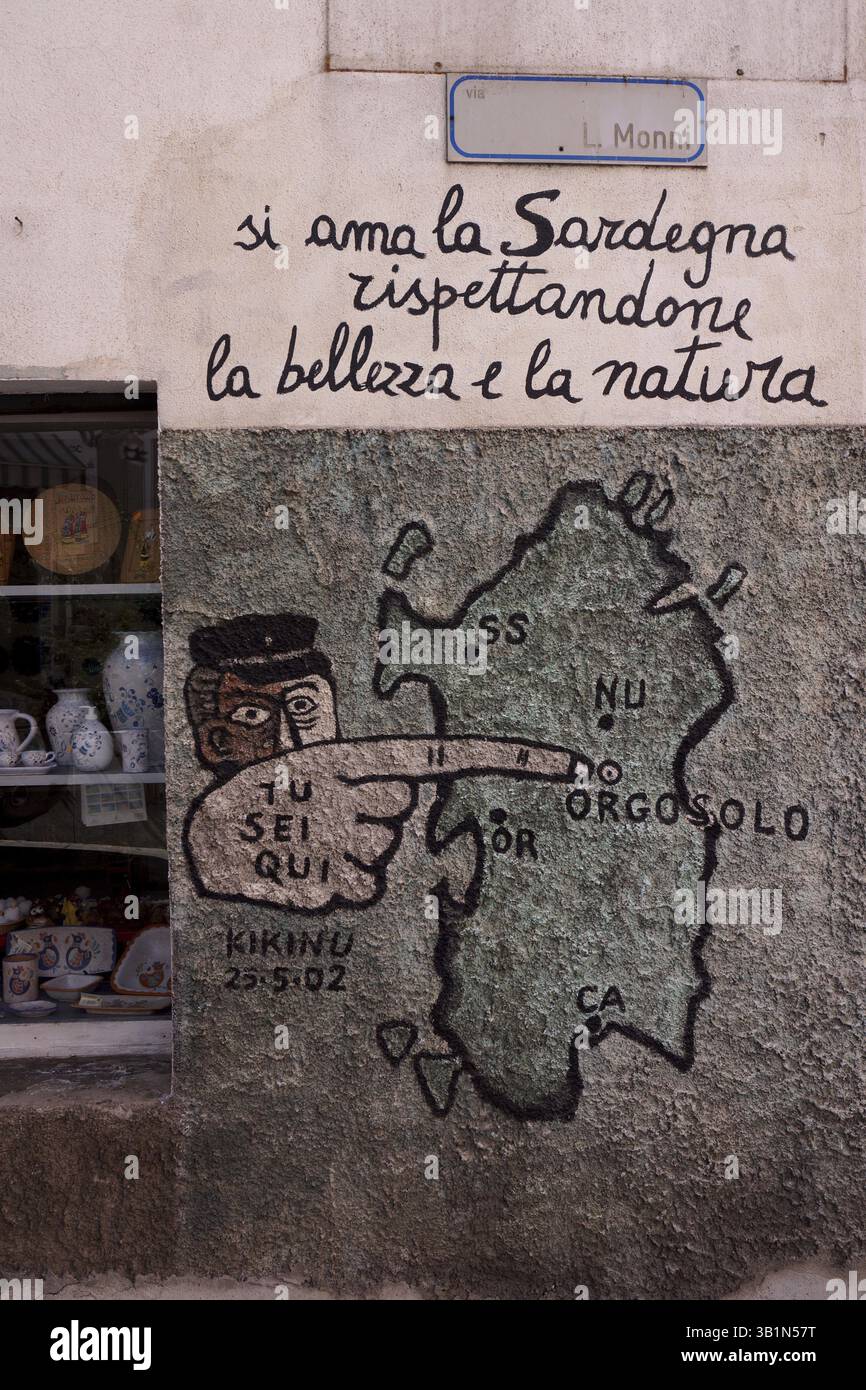 via
L. Monni
si ama la Sardegna
rispettandone
la bellezza e la natura
SS
NU
ORGOSOLO
OR
CA
TU
SEI
QUI
KIKINU
25·5·02
a
alamy
Image ID: 3B1N57T
www.alamy.com